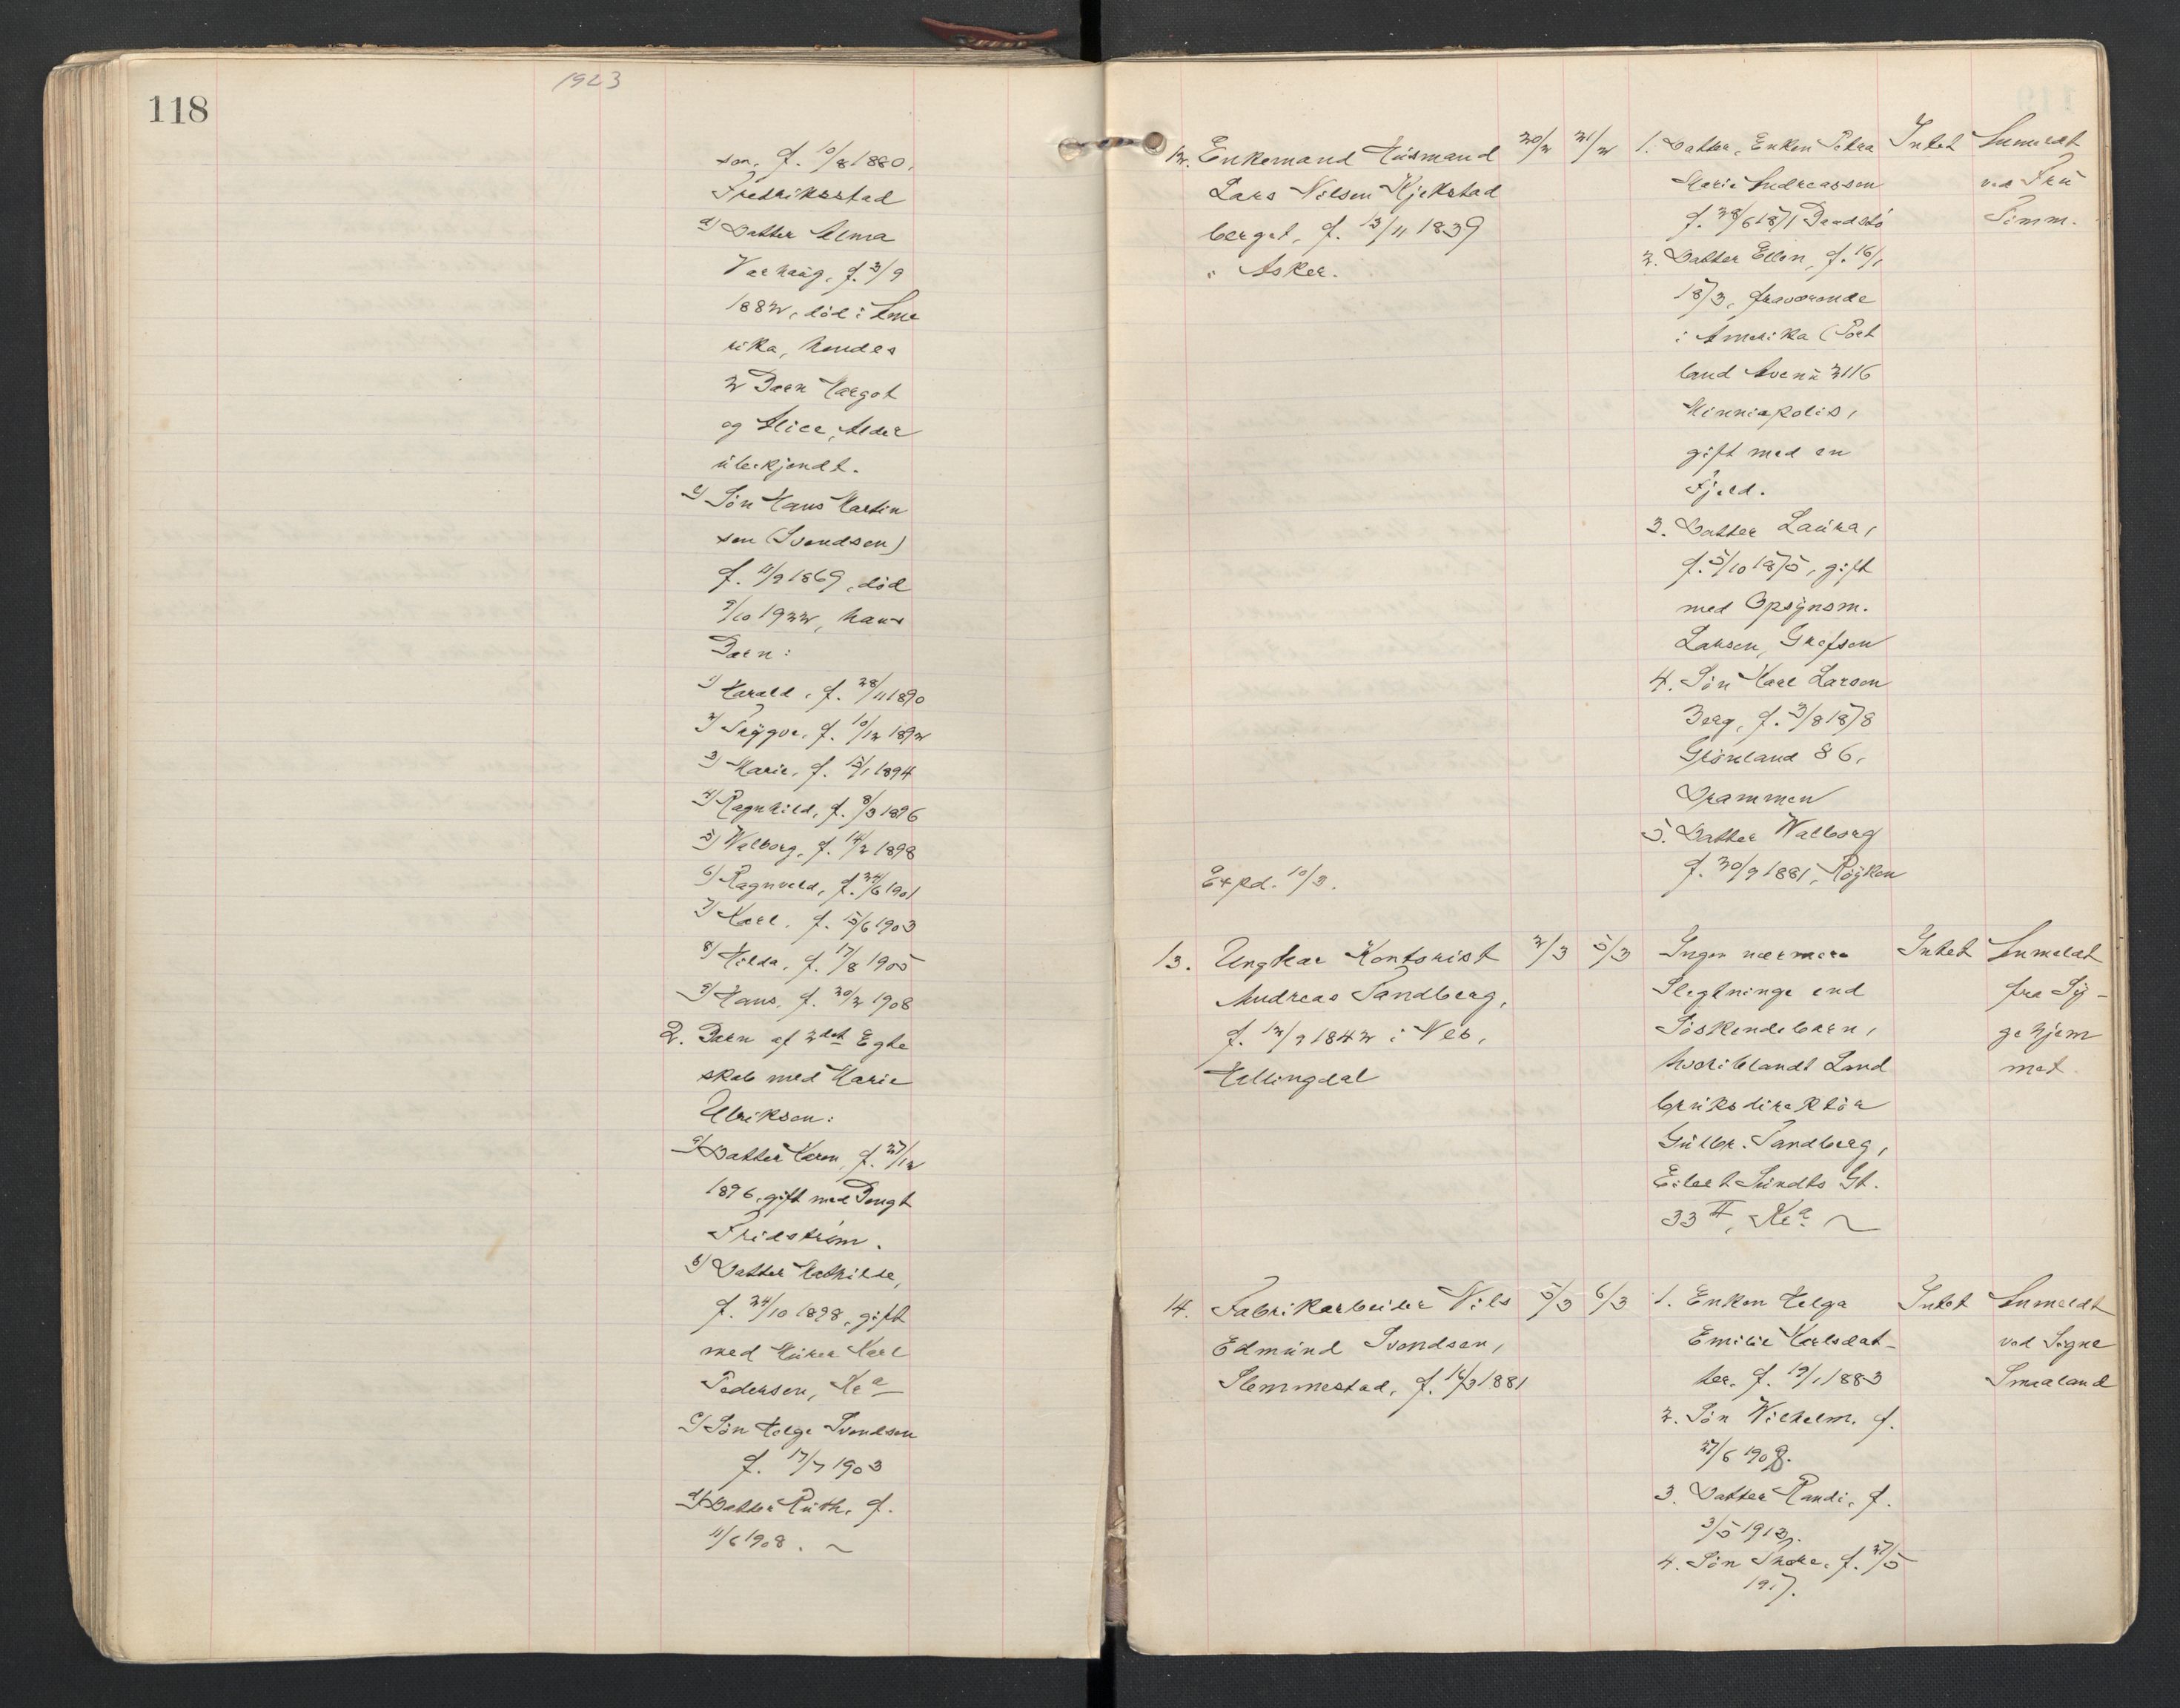 118
1923
sen, f. 10/8 1880,
Fredriksstad
d) Datter Alma
Varhaug, f. 3/9
1882, död i Ame
rika, hendes
2 Barn Margot
og Alice, Alder
übekjendt.
e) Sön Hans Martin
sen (Svendsen)
f. 11/9 1869, död
9/10 1922, hans
Barn:
1) Harald, f. 28/11 1890
2) Trÿgve, f. 10/12 1892
3) Marie, f. 15/1 1894
4) Ragnhild, f. 8/3 1896
5) Walborg, f. 14/2 1898
6) Ragnvald, f. 24/6 1901
7) Karl, f. 15/6 1903
8) Hilda, f. 17/8 1905
9) Hans, f. 20/2 1908
2. Barn af 2det Egte
skab med Marie
Ulriksen:
a) Datter Karen, f. 27/12
1896, gift med Bengt
Fridström.
b) Datter Mathilde,
f. 24/10 1898, gift
med Mürer Karl
Pedersen, Kr.a
c) Sön Helge Svendsen
f. 17/7 1903
d) Datter Rüth, f.
11/6 1908. ~
12. Enkemand Hüsmand
Lars Nilsen Kjekstad
berget, f. 13/11 1839
i Asker.
20/2 21/2
1. Datter, Enken Petra
Marie Andreassen
f. 28/6 1871
2. Datter Ellen, f. 16/1
1873, fraværende
i Amerika (Port
land Avenü 3116
Minniapolis,
gift med en
Fjeld.
3. Datter Laüra,
f. 5/10 1875, gift
med Opsÿnsm.
Larsen, Grefsen
4. Sön Karl Larsen
Berg, f. 3/8 1878
Grönland 86,
Drammen
5. Datter Walborg
f. 30/9 1881, Röÿken
Intet
Anmeldt
ved Frü
Timm.
Expd. 10/3.
13. Ungkar Kontorist
Andreas Sandberg,
f. 12/9 1842 i Nes,
Hallingdal
2/3 5/3
Ingen nærmere
Slegtninge end
Söskendebarn,
hvoriblandt Land
brüksdirektör
Gülbr. Sandberg,
Eilert Sündts Gt.
33 II, Kr.a ~
Intet
Anmeldt
fra Sÿ-
gehjem
met
14. Fabrikarbeider Nils
Edmünd Svendsen,
Slemmestad, f. 16/3 1881
5/3 6/3
1. Enken Helga
Emilie Karlsdat-
ter, f. 19/1 1883
2. Sön Wilhelm, f.
27/6 1908.
3. Datter Randi, f.
3/5 1912.
4. Sön Thore, f. 27/5
1917.
Intet
Anmeldt
ved Signe
Smaaland